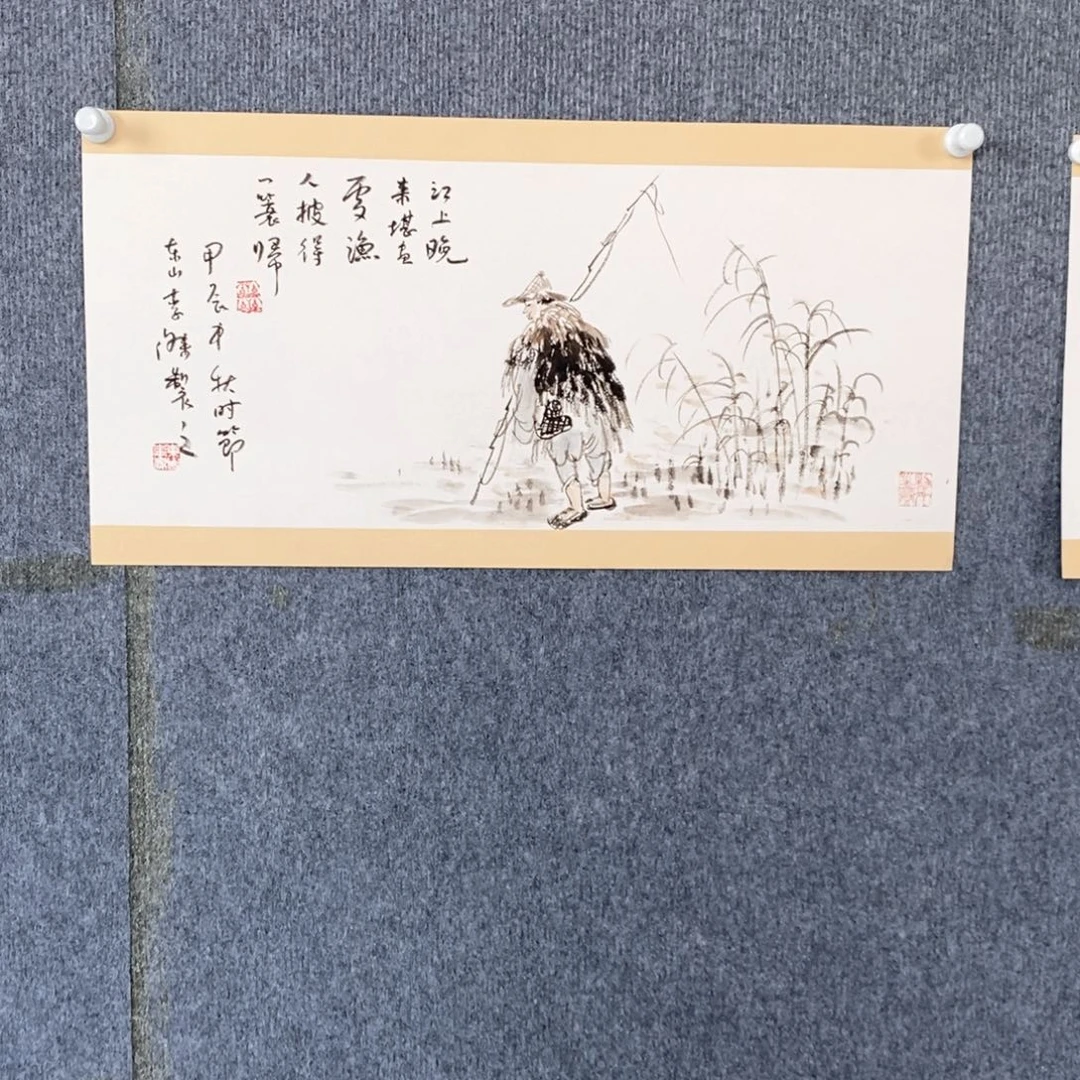 江上晚
来堪画
處漁
人披得
一蓑歸
甲辰中秋时節
东山李
製之